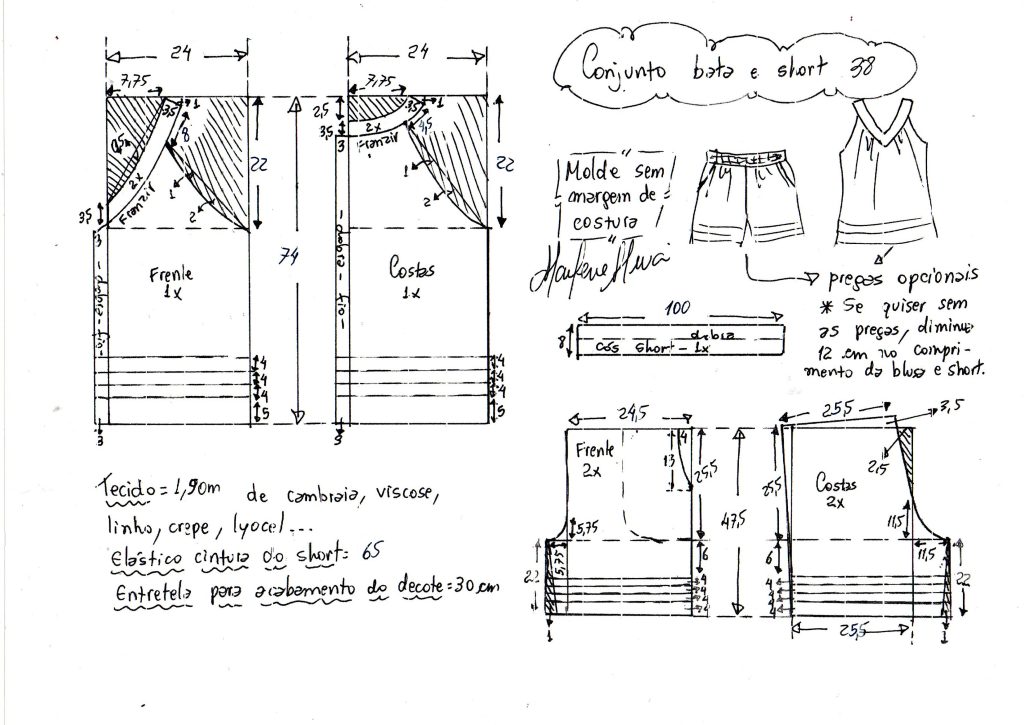 Conjunto bata e short 38
24
7,75
1
3,5
8
0,5
2x
Franzir
1
2
22
3,5
3
dobra - fio
Frente
1x
4
4
4
5
3
74
24
7,75
1
2,5
3,5
3,5
4,5
2x
Franzir
3
1
2
22
dobra - fio
Costas
1x
4
4
4
5
3
"Molde sem
margem de
costura"
Marlene Mukai
pregas opcionais
* Se quiser sem
as pregas, diminua
12 cm no compri-
mento da blusa e short.
100
8
dobra
cós short - 1x
Tecido = 1,90m de cambraia, viscose,
linho, crepe, lyocel...
Elástico cintura do short = 65
Entretela para acabamento do decote = 30 cm
24,5
Frente
2x
4
13
25,5
5,75
5,75
22
6
4
4
4
1
47,5
25,5
3,5
2,5
25,5
Costas
2x
11,5
11,5
6
4
4
4
22
25,5
1